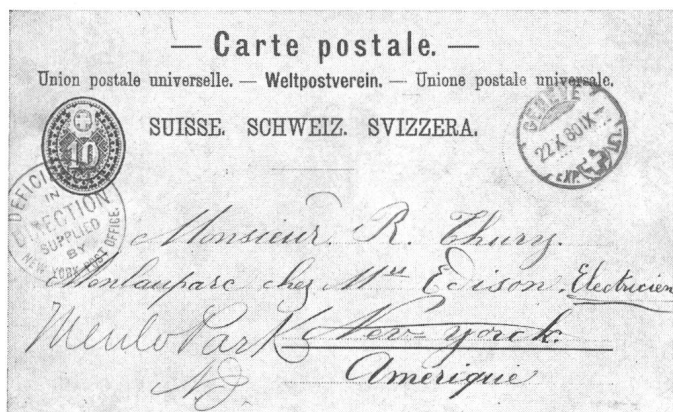 — Carte postale. —
Union postale universelle. — Weltpostverein. — Unione postale universale.
SUISSE. SCHWEIZ. SVIZZERA.
10
GENÈVE
22.X.80.IX
EXP.
DEFICIENCY
IN
DIRECTION
SUPPLIED
BY
NEW YORK POST OFFICE.
Monsieur. R. Thury.
Menlauparc chez Mrs Edison, Electricien
Menlo Park New-yorck.
NJ. Amérique